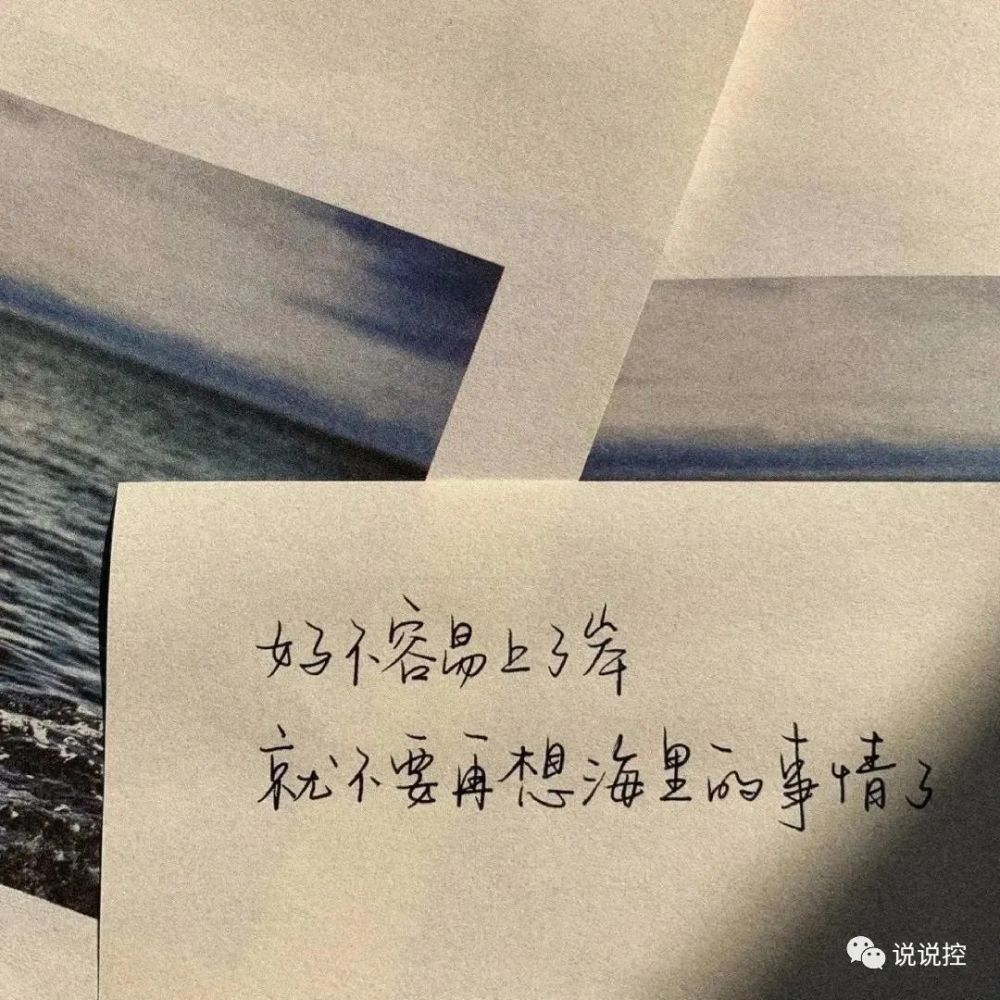 好不容易上了岸
就不要再想海里的事情了
说说控